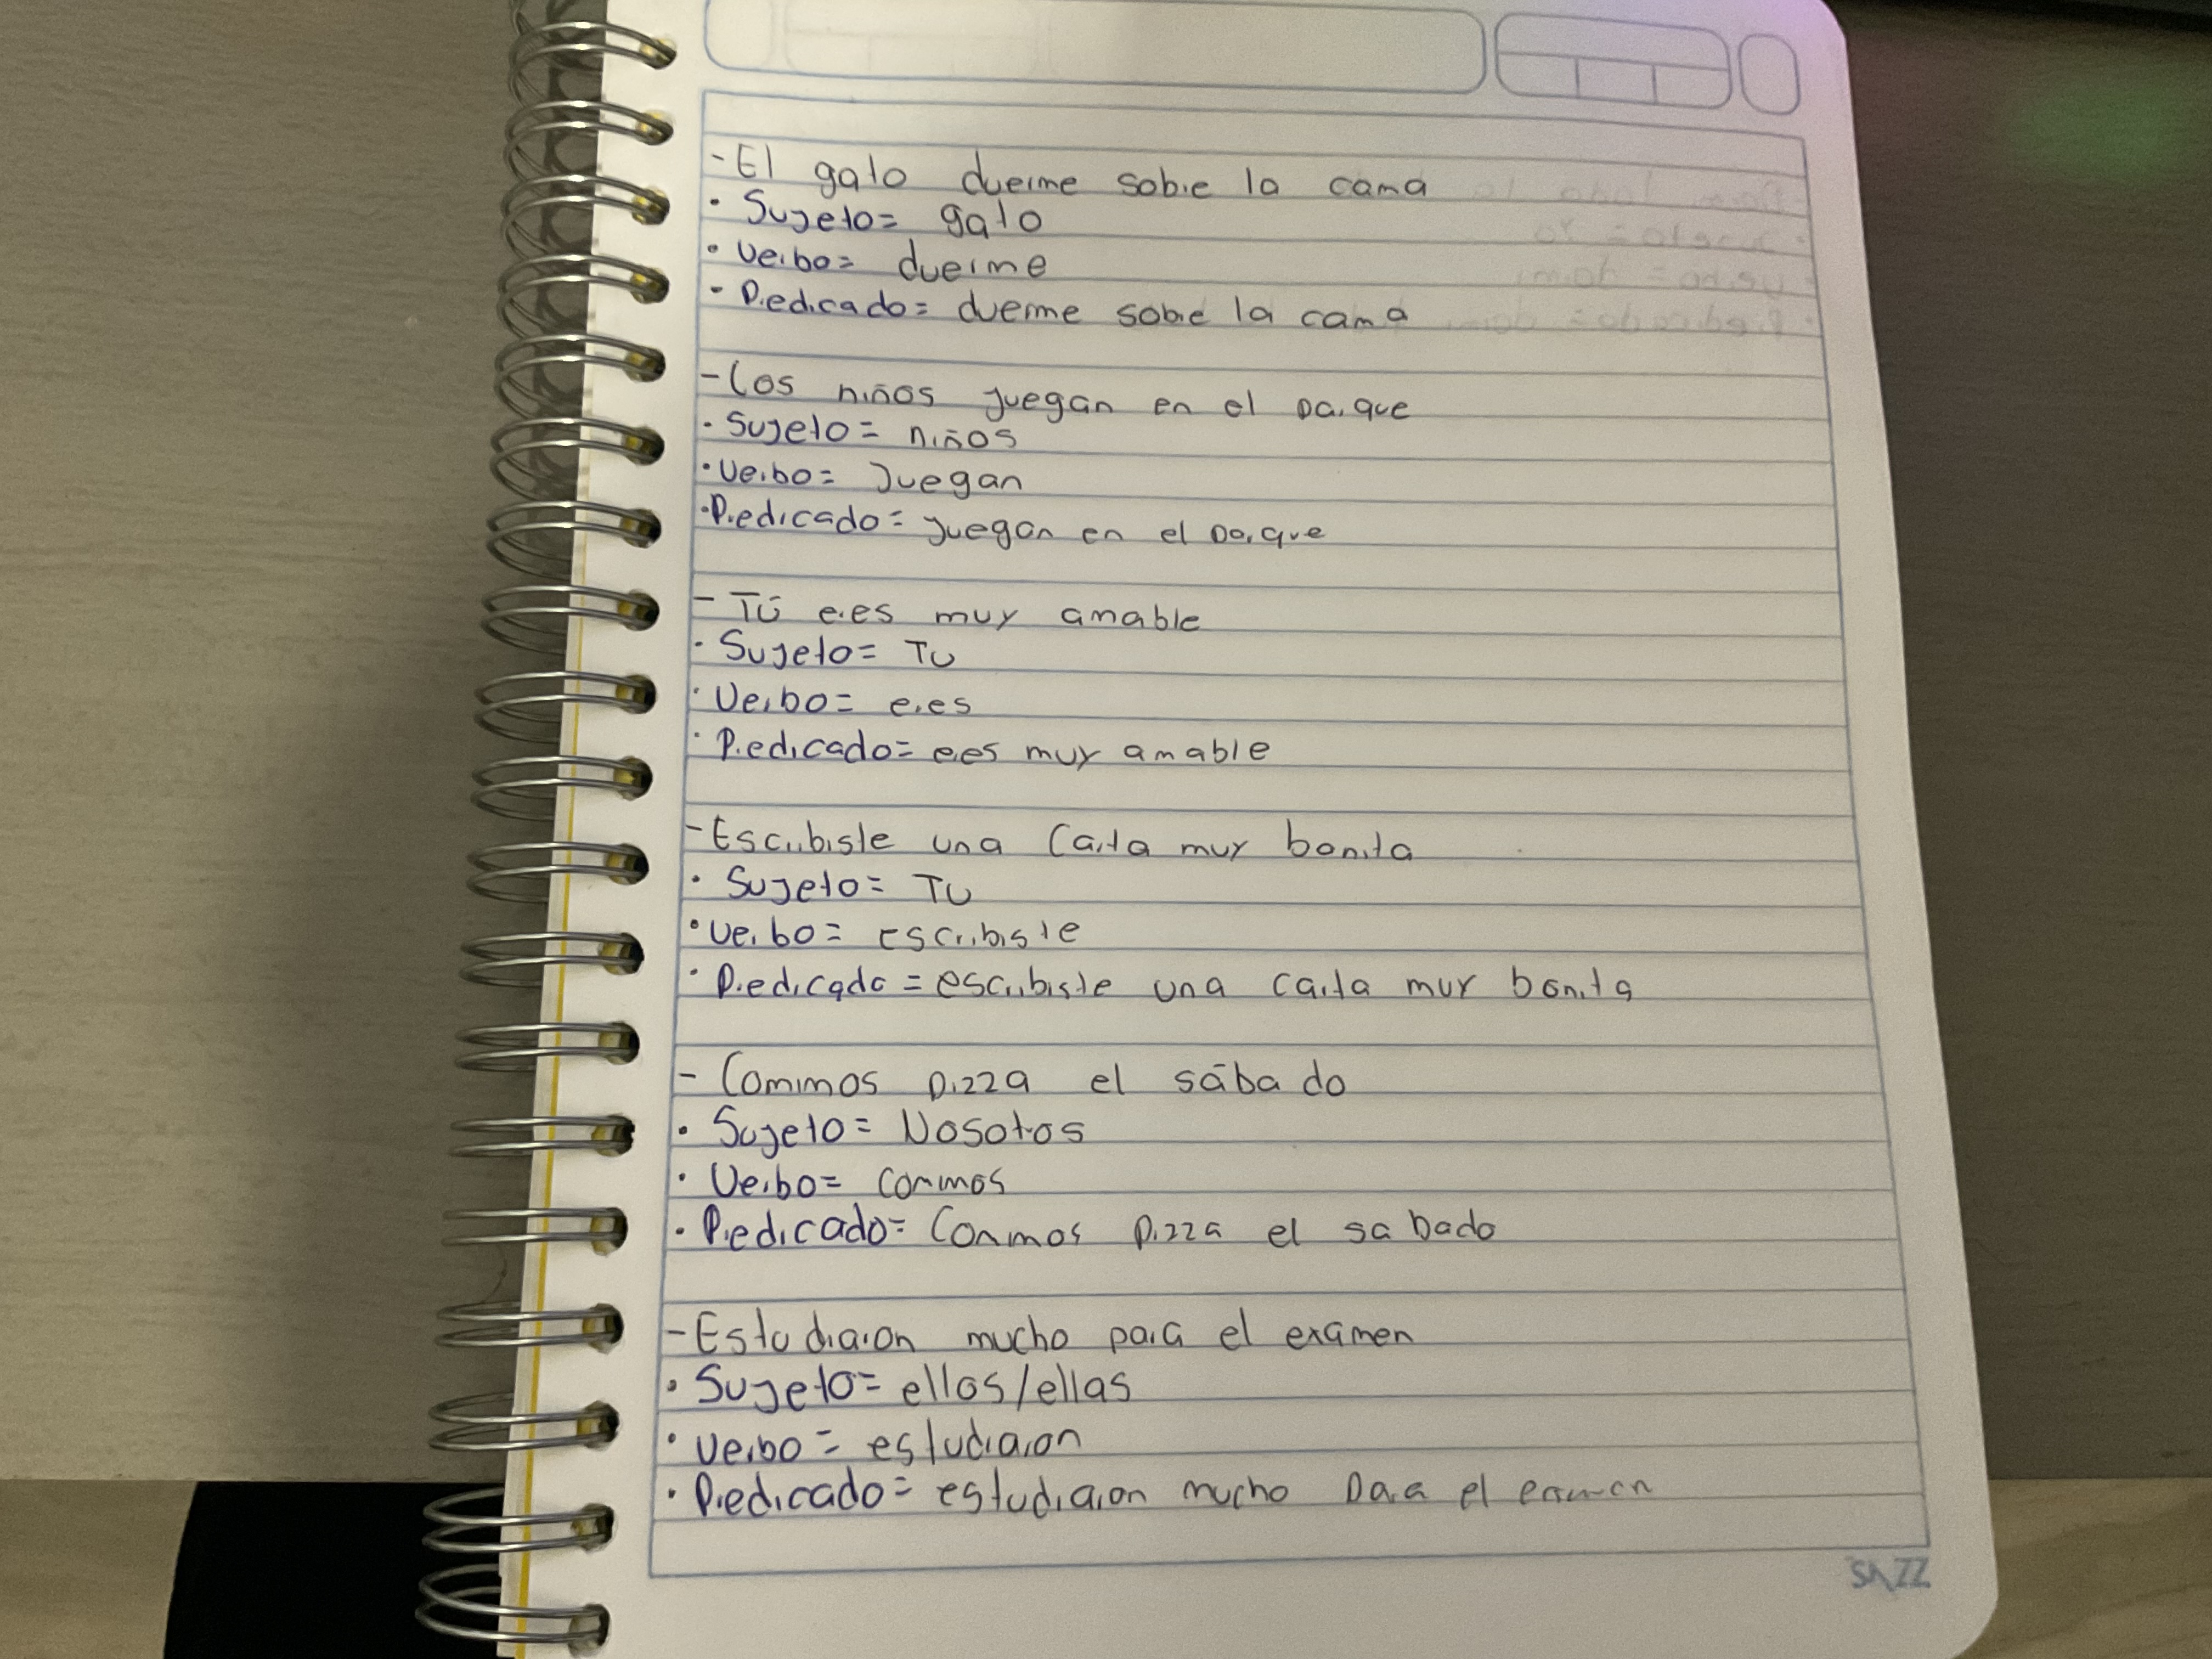 - El gato duerme sobre la cama
• Sujeto= gato
• Verbo= duerme
- Predicado= duerme sobre la cama
- Los niños juegan en el parque
• Sujeto= niños
• Verbo= Juegan
• Predicado= juegan en el parque
- Tú eres muy amable
• Sujeto= Tu
• Verbo= eres
• Predicado= eres muy amable
- Escribiste una Carta muy bonita
• Sujeto= Tu
• Verbo= escribiste
• Predicado= escribiste una carta muy bonita
- Comimos pizza el sábado
• Sujeto= Nosotros
• Verbo= comimos
• Predicado= Comimos pizza el sabado
- Estudiaron mucho para el examen
• Sujeto= ellos/ellas
• Verbo= estudiaron
• Predicado= estudiaron mucho para el examen